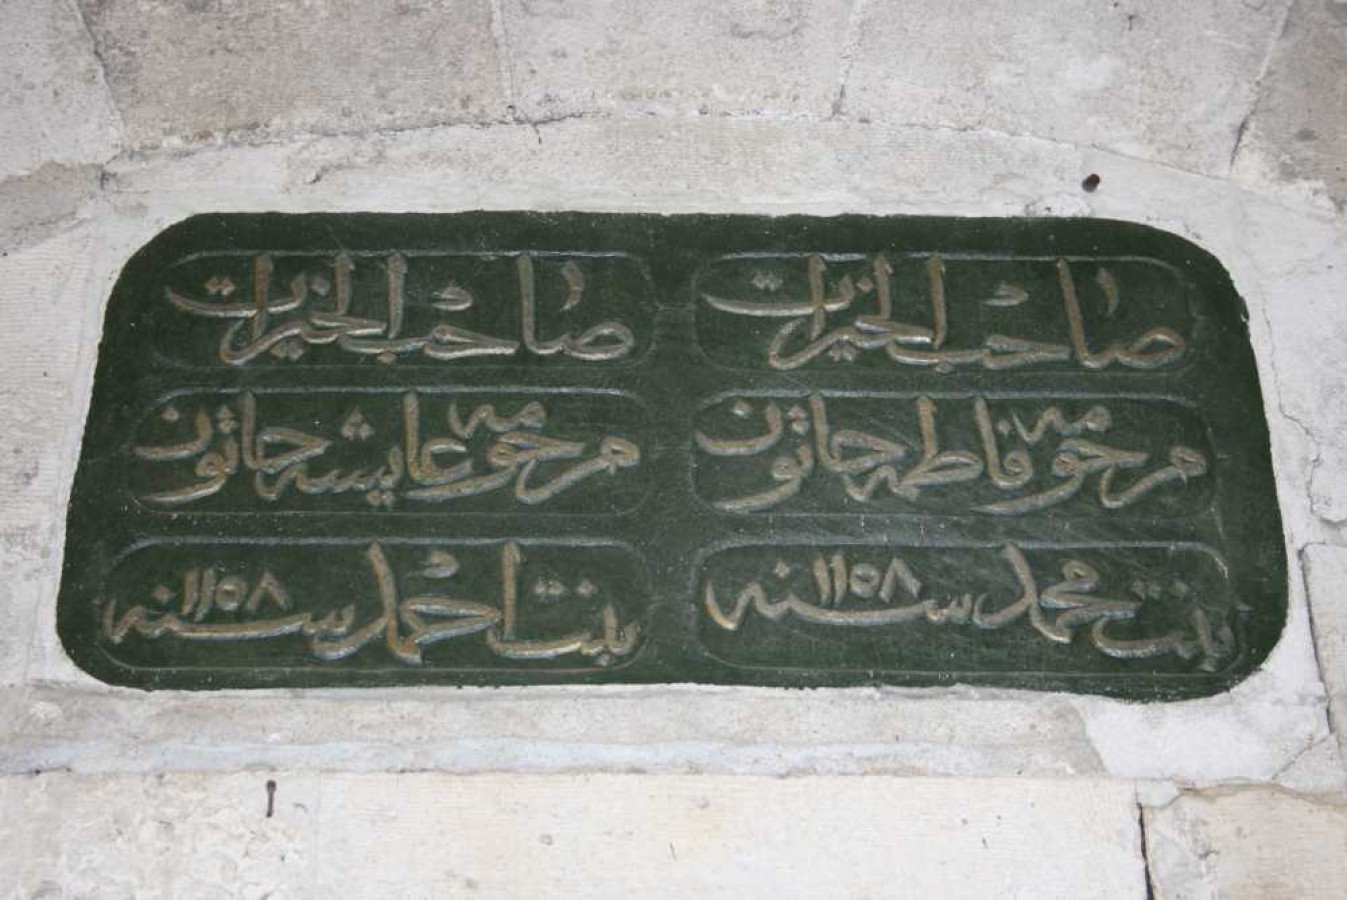 صاحب الخيرات
مرحومه فاطمه خاتون
بنت محمد سنه ١١٥٨
صاحب الخيرات
مرحومه عايشه خاتون
بنت احمد سنه ١١٥٨